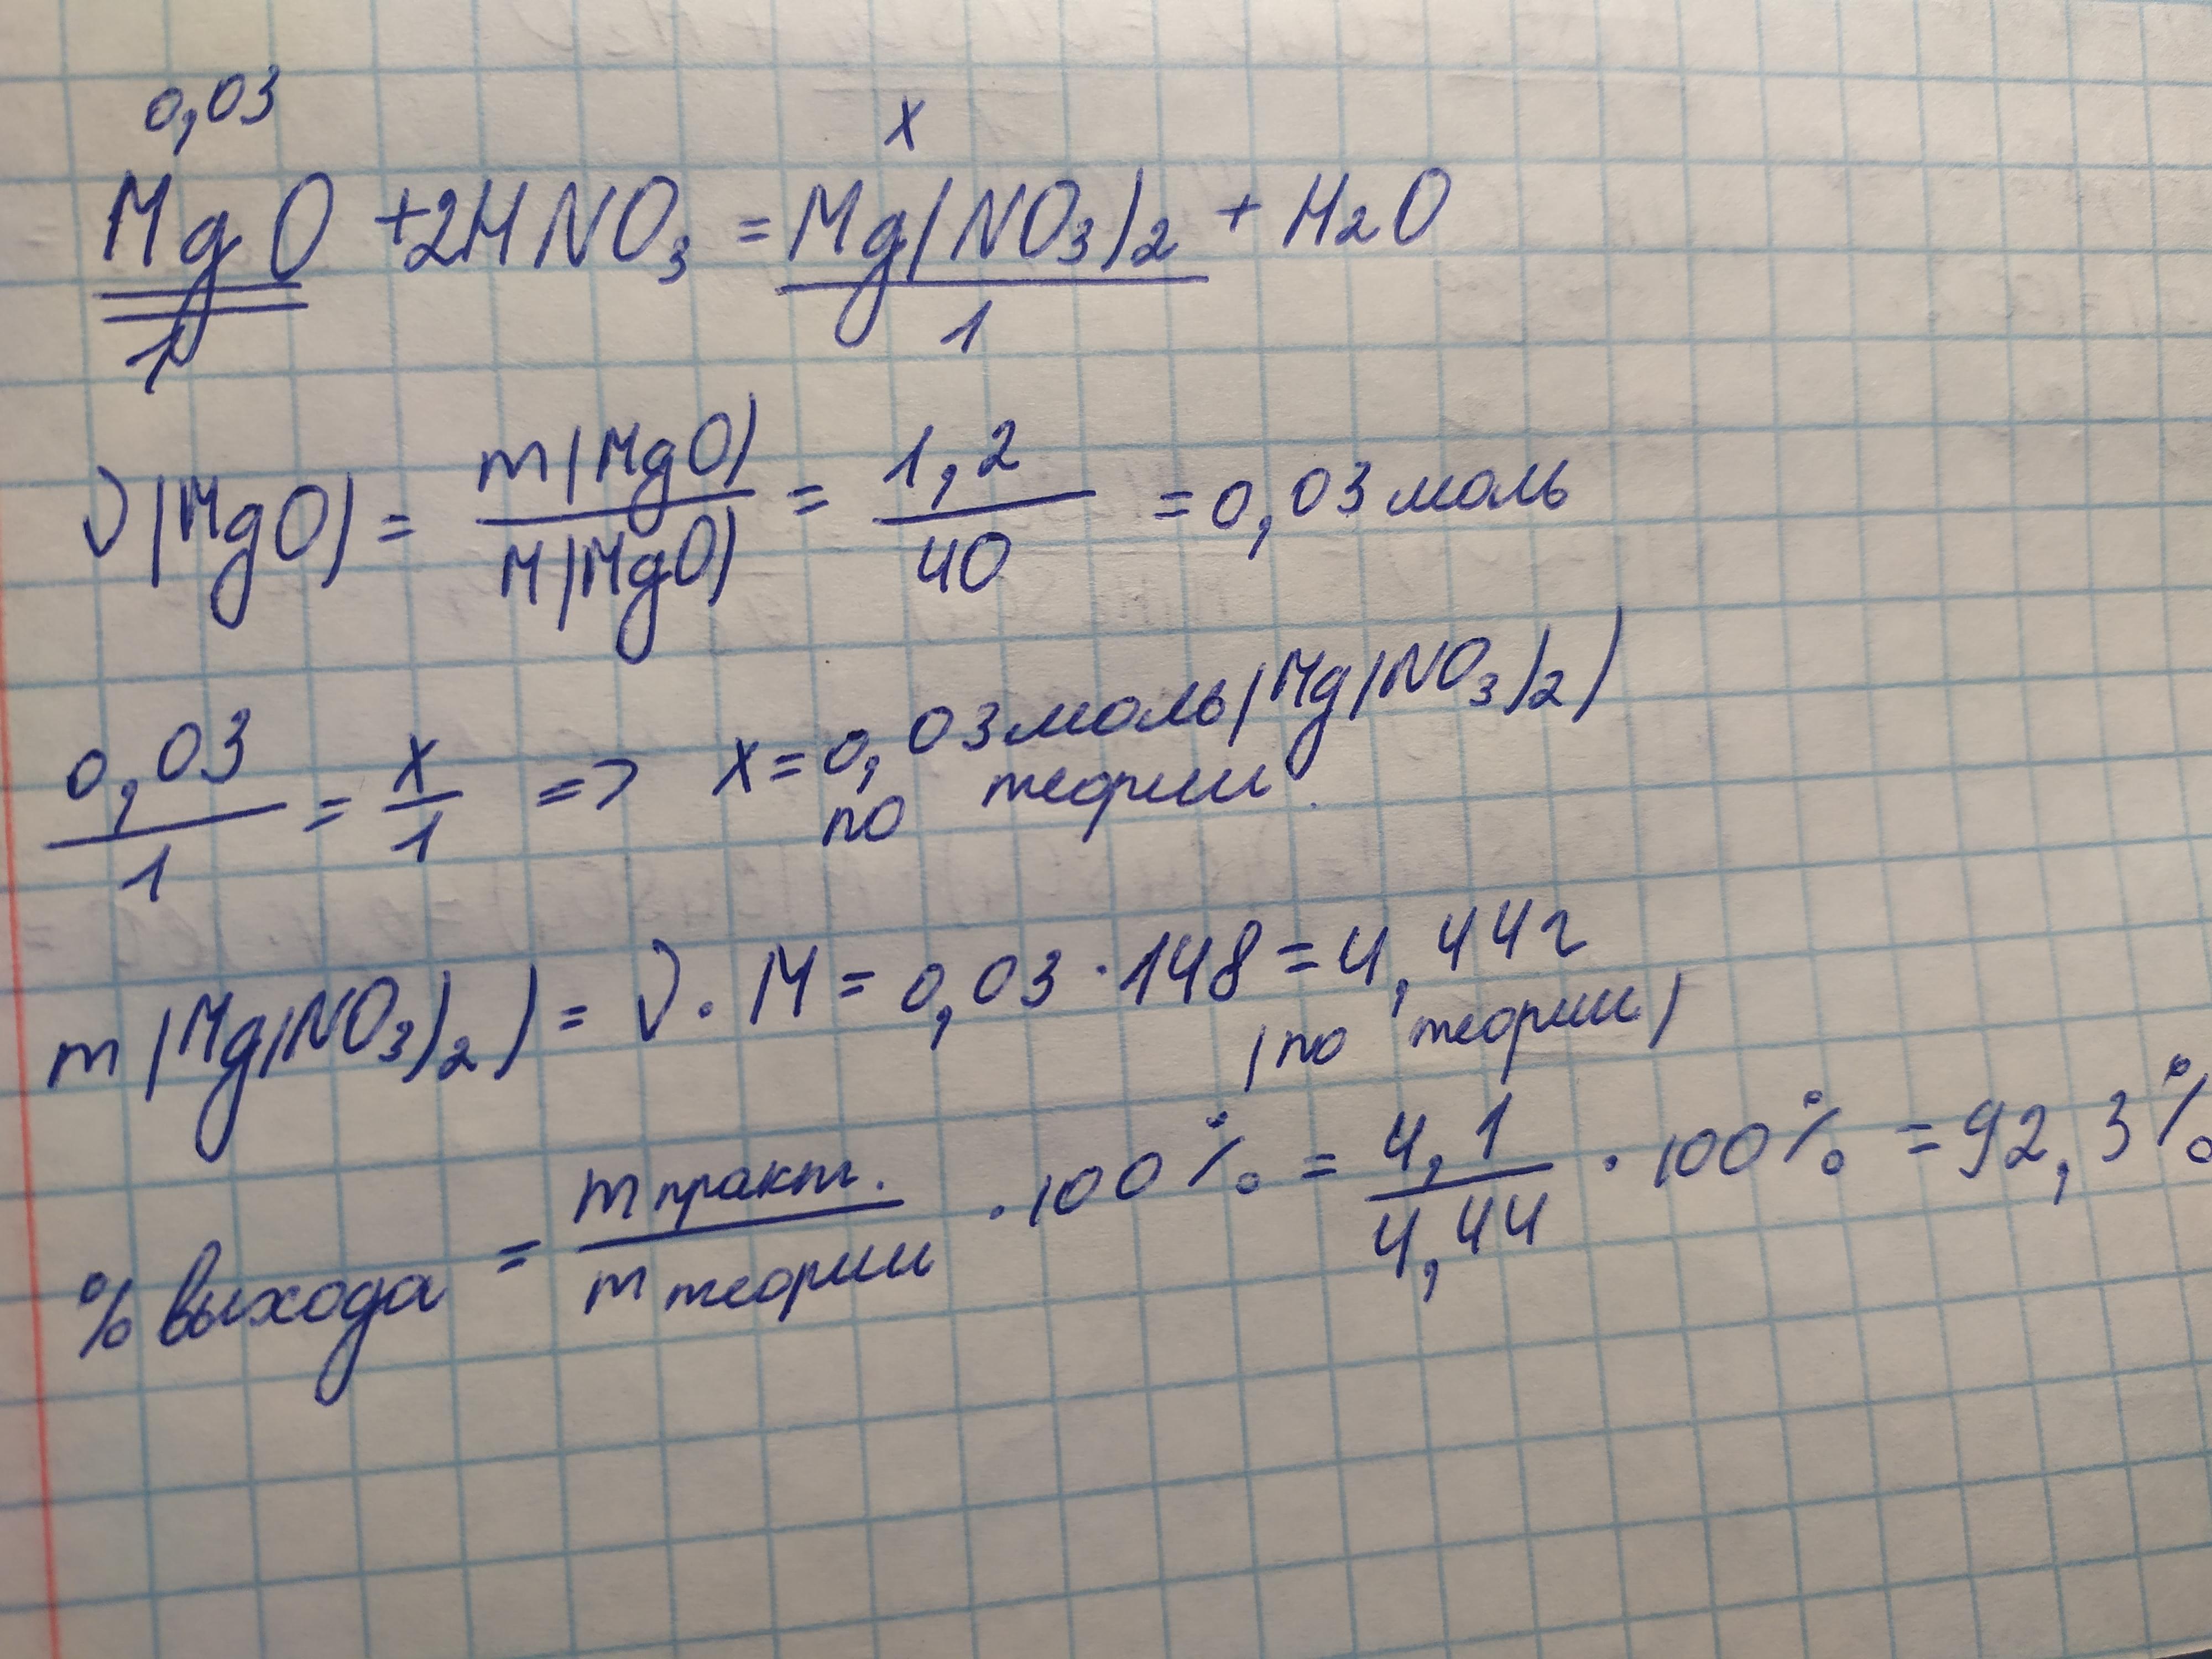 0,03 x
MgO + 2HNO3 = Mg(NO3)2 + H2O
1 1
ν(MgO) = m(MgO) / M(MgO) = 1,2 / 40 = 0,03 моль
0,03 / 1 = x / 1 => x = 0,03 моль (Mg(NO3)2)
по теории
m(Mg(NO3)2) = ν · M = 0,03 · 148 = 4,44 г
(по теории)
% выхода = m практ. / m теории · 100% = 4,1 / 4,44 · 100% = 92,3%